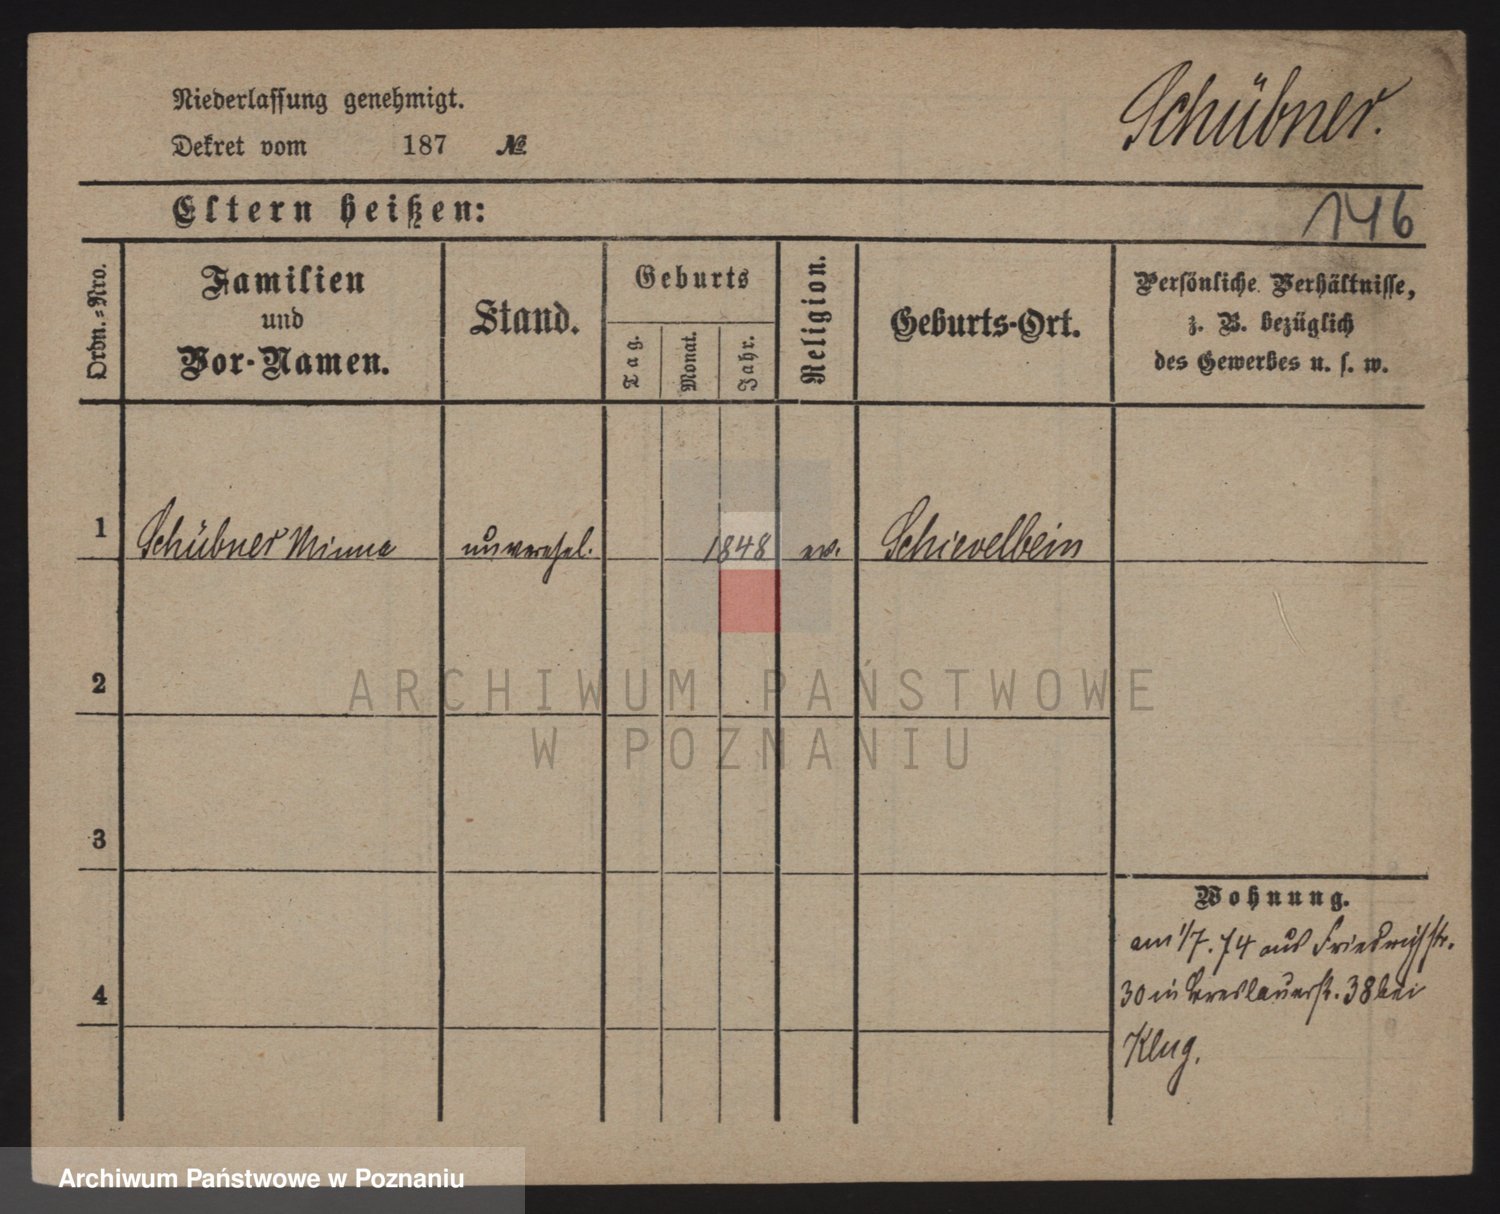 Niederlassung genehmigt.
Dekret vom 187 №
Schübner.
146
Eltern heißen:
Ordn.-Nro.
Familien
und
Vor-Namen.
Stand.
Geburts
Tag.
Monat.
Jahr.
Religion.
Geburts-Ort.
Persönliche Verhältnisse,
z. B. bezüglich
des Gewerbes u. s. w.
1 Schübner Minna unverehel. 1848 ev. Schievelbein
2
ARCHIWUM PAŃSTWOWE
W POZNANIU
3
4
Wohnung.
am 1/7. 74 aus Friedrichstr.
30 in Breslauerstr. 38 bei
Klug.
Archiwum Państwowe w Poznaniu